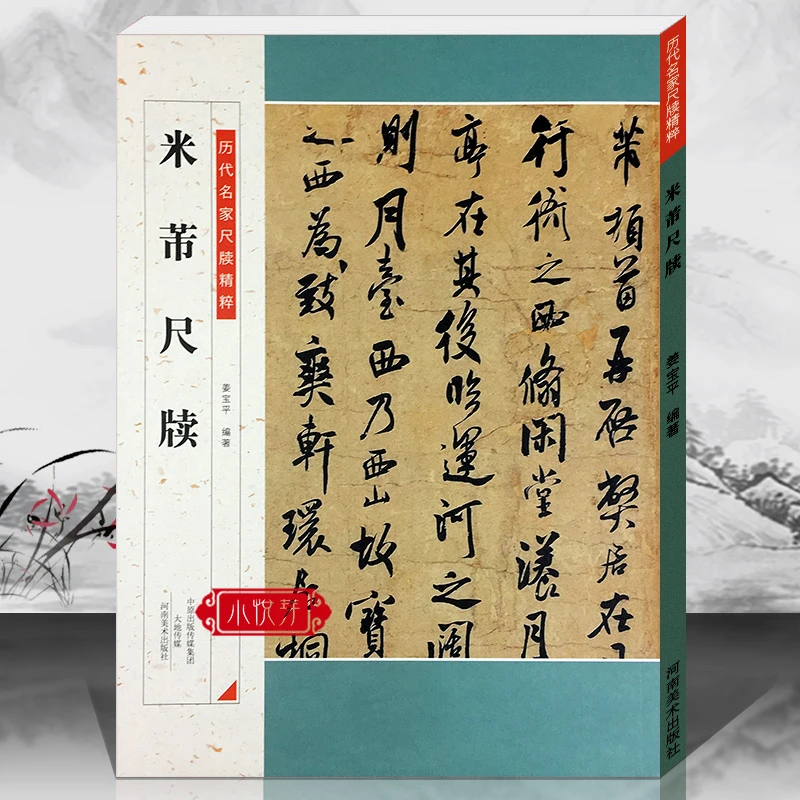 米芾尺牍
历代名家尺牍精粹
姜宝平 编著
中原出版传媒集团
大地传媒
河南美术出版社
芾頓首再啓弊居在
行衙之西脩閑堂漾月
亭在其後臨運河之闊
則月臺西乃西山故寶
之西為致爽軒環居桐
小悦芽
历代名家尺牍精粹
米芾尺牍
姜宝平 编著
河南美术出版社